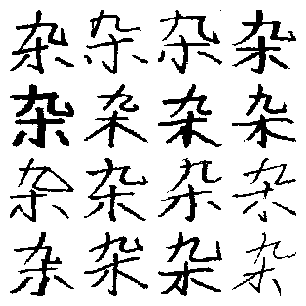 杂杂杂杂
杂杂杂杂
杂杂杂杂
杂杂杂杂